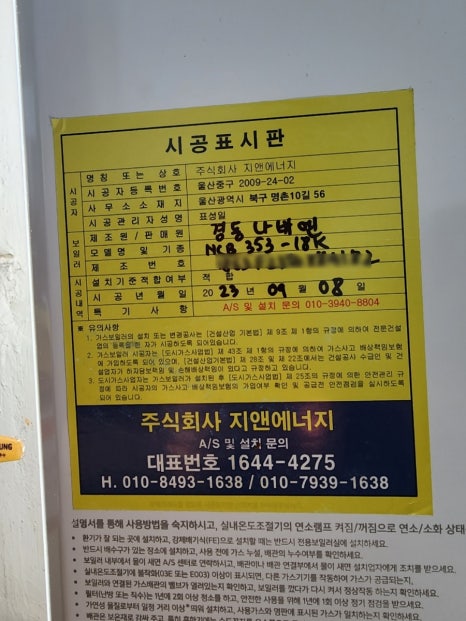 시공표시판
시공자
명칭 또는 상호 주식회사 지앤에너지
시공자등록번호 울산중구 2009-24-02
사무소소재지 울산광역시 북구 명촌10길 56
시공관리자성명 표성일
보일러
제조원/판매원 경동 나비엔
모델명 및 기종 NCB 353-18K
제조번호
시공내역
설치기준적합여부 적합
시공년월일 2023년 09월 08일
특기사항 A/S 및 설치 문의 010-3940-8804
※ 유의사항
1. 가스보일러의 설치 또는 변경공사는 [건설산업 기본법] 제 9조 제 1항의 규정에 의하여 전문건설
업의 등록을 한 자가 시공하도록 되어있습니다.
2. 가스보일러 시공자는 [도시가스사업법] 제 43조 제 1항의 규정에 의하여 가스사고 배상책임보험
에 가입하도록 되어 있으며, [건설산업기본법] 제 28조 및 제 22조에서는 건설공사 수급인 및 건
설업자가 하자담보책임 및 손해배상책임이 있다고 규정하고 있습니다.
3. 도시가스사업자는 가스보일러가 설치된 후 [도시가스사업법] 제 25조의 규정에 의한 안전관리 규
정에 따라 시공자의 가스사고 배상책임보험의 가입여부 확인 및 공급전 안전점검을 실시하도록
되어 있습니다.
주식회사 지앤에너지
A/S 및 설치 문의
대표번호 1644-4275
H. 010-8493-1638 / 010-7939-1638
설명서를 통해 사용방법을 숙지하시고, 실내온도조절기의 연소램프 켜짐/꺼짐으로 연소/소화 상태
• 환기가 잘 되는 곳에 설치하고, 강제배기식(FE)으로 설치할 때는 반드시 전용보일러실에 설치하세요.
• 반드시 배수구가 있는 장소에 설치하고, 사용 전에 가스 누설, 배관의 누수여부를 확인하세요.
• 보일러 내부에서 물이 새면 A/S 센터로 연락하시고, 배관이나 배관 연결부에서 물이 새면 설치업자에게 조치를 받으세요.
• 실내온도조절기에 불착화(03E 또는 E003) 이상이 표시되면, 다른 가스기기를 작동하여 가스가 공급되는지,
• 보일러와 연결된 가스배관의 밸브가 열려있는지 확인하고, 보일러를 껐다가 다시 켜서 정상작동 하는지 확인하세요.
• 필터(난방 또는 직수)는 1년에 2회 이상 청소를 하고, 안전한 사용을 위해 1년에 1회 이상 정기 점검을 받으세요.
• 가연성 물질로부터 일정 거리 이상 띄워 설치하고, 사용가스와 명판에 표시된 가스가 일치하는지 확인하세요.
UNG